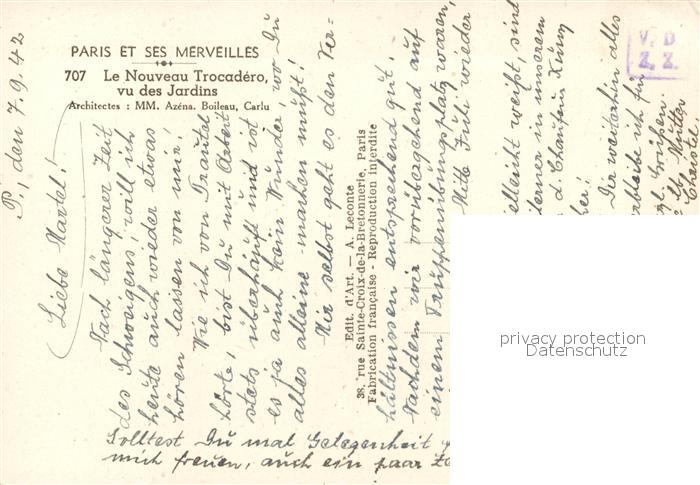 PARIS ET SES MERVEILLES
707 Le Nouveau Trocadéro,
vu des Jardins
Architectes : MM. Azéna. Boileau, Carlu
Edit. d'Art. — A. Leconte
38, rue Sainte-Croix-de-la-Bretonnerie, Paris
Fabrication française - Reproduction interdite
V. D
Z. Z.
P., den 7.9.42
Liebe Martel!
Nach längerer Zeit
des Schweigens, will ich
heute auch wieder etwas
hören lassen von mir.
Wie ich von Trautel
hörte, bist Du mit Arbeit
stets überhäuft und ist
es ja auch kein Wunder, wo Du
alles alleine machen mußt!
Mir selbst geht es den Ver-
hältnissen entsprechend gut.
Nachdem wir vorübergehend auf
einem Truppenübungsplatz waren,
Mitte Juli wieder
vielleicht weißt, sind
in unserem
d.
her!
Dir weiterhin alles
verbleibe ich für
Grüßen
Mutter
Solltest Du mal Gelegenheit
mich freuen, auch ein paar
privacy protection
Datenschutz